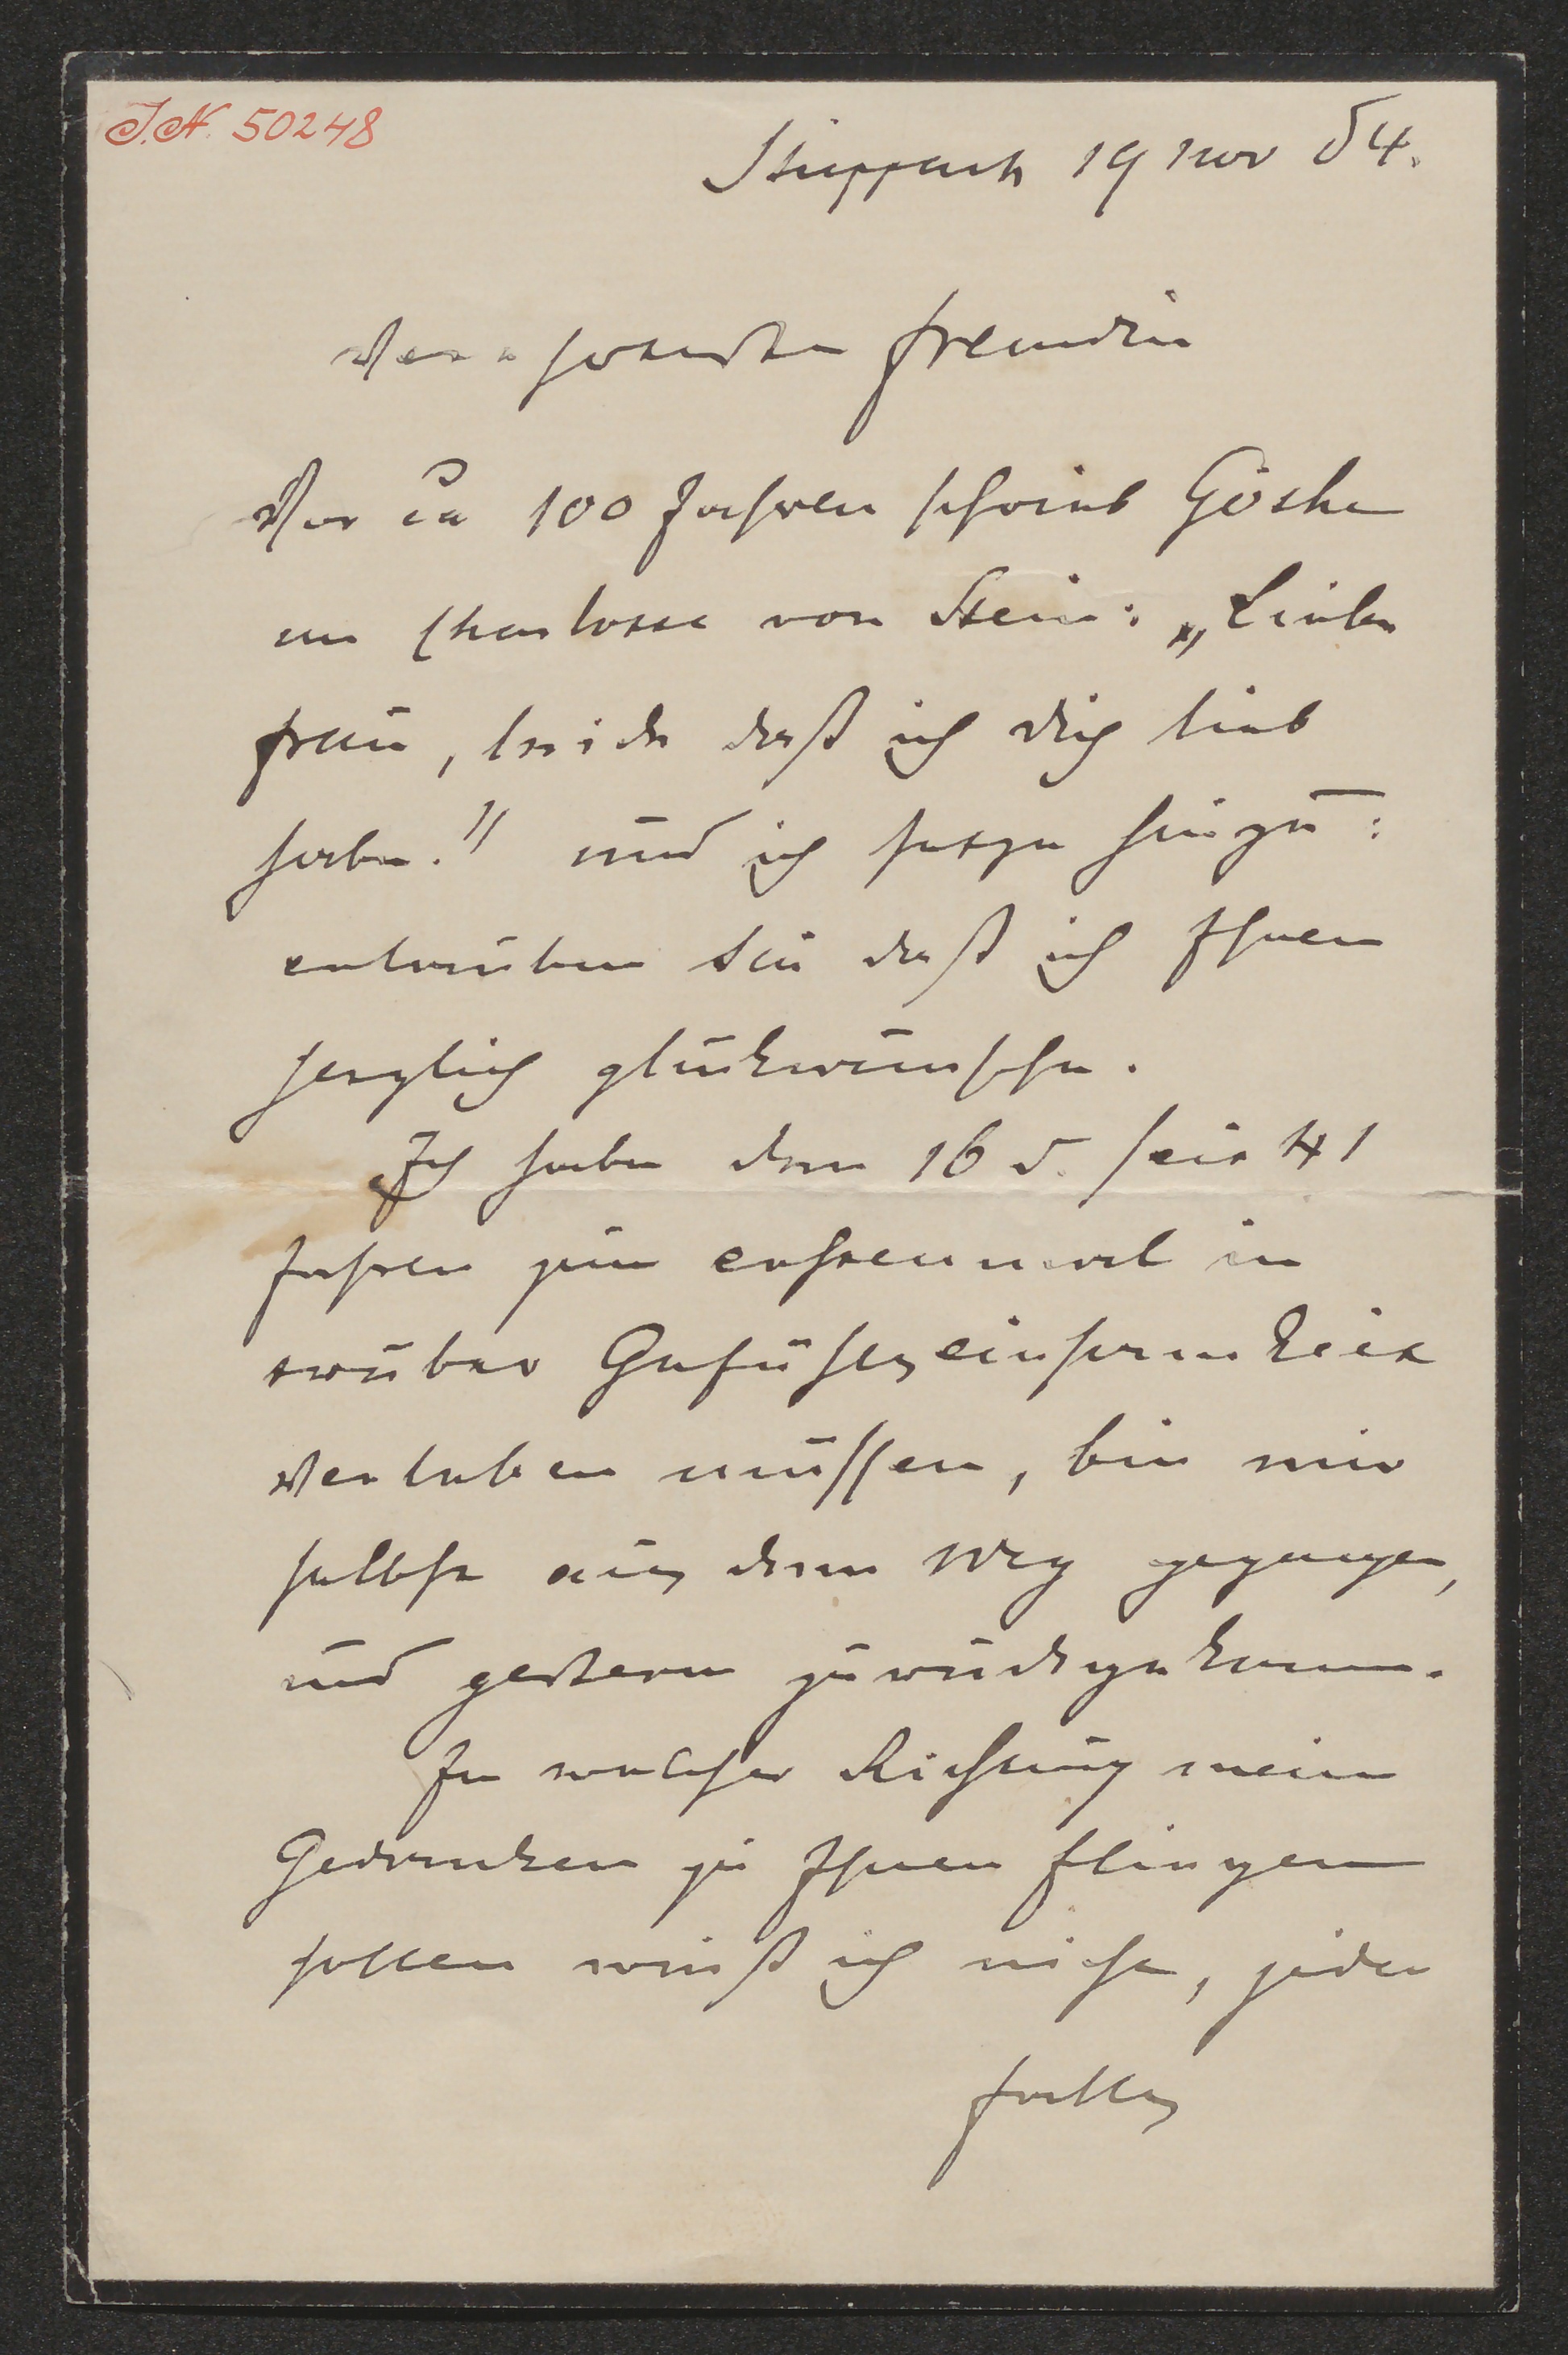 J.N. 50248
Stuppach 19 nov 84.
Verehrteste Freundin
Vor ca 100 Jahren schrieb Göthe
an Charlotte von Stein: „Liebe
Frau, leide daß ich dich lieb
habe." und ich setze hinzu:
erlauben Sie daß ich Ihnen
herzlich glückwünsche.
Ich habe den 16 d. seit 41
Jahren zum erstenmal in
trüber Gefühlseinsamkeit
verleben müssen, bin mir
selbst aus dem Weg gegangen,
und gestern zurückgekommen.
In welcher Richtung meine
Gedanken zu Ihnen fliegen
sollen weiß ich nicht, jeden
falls